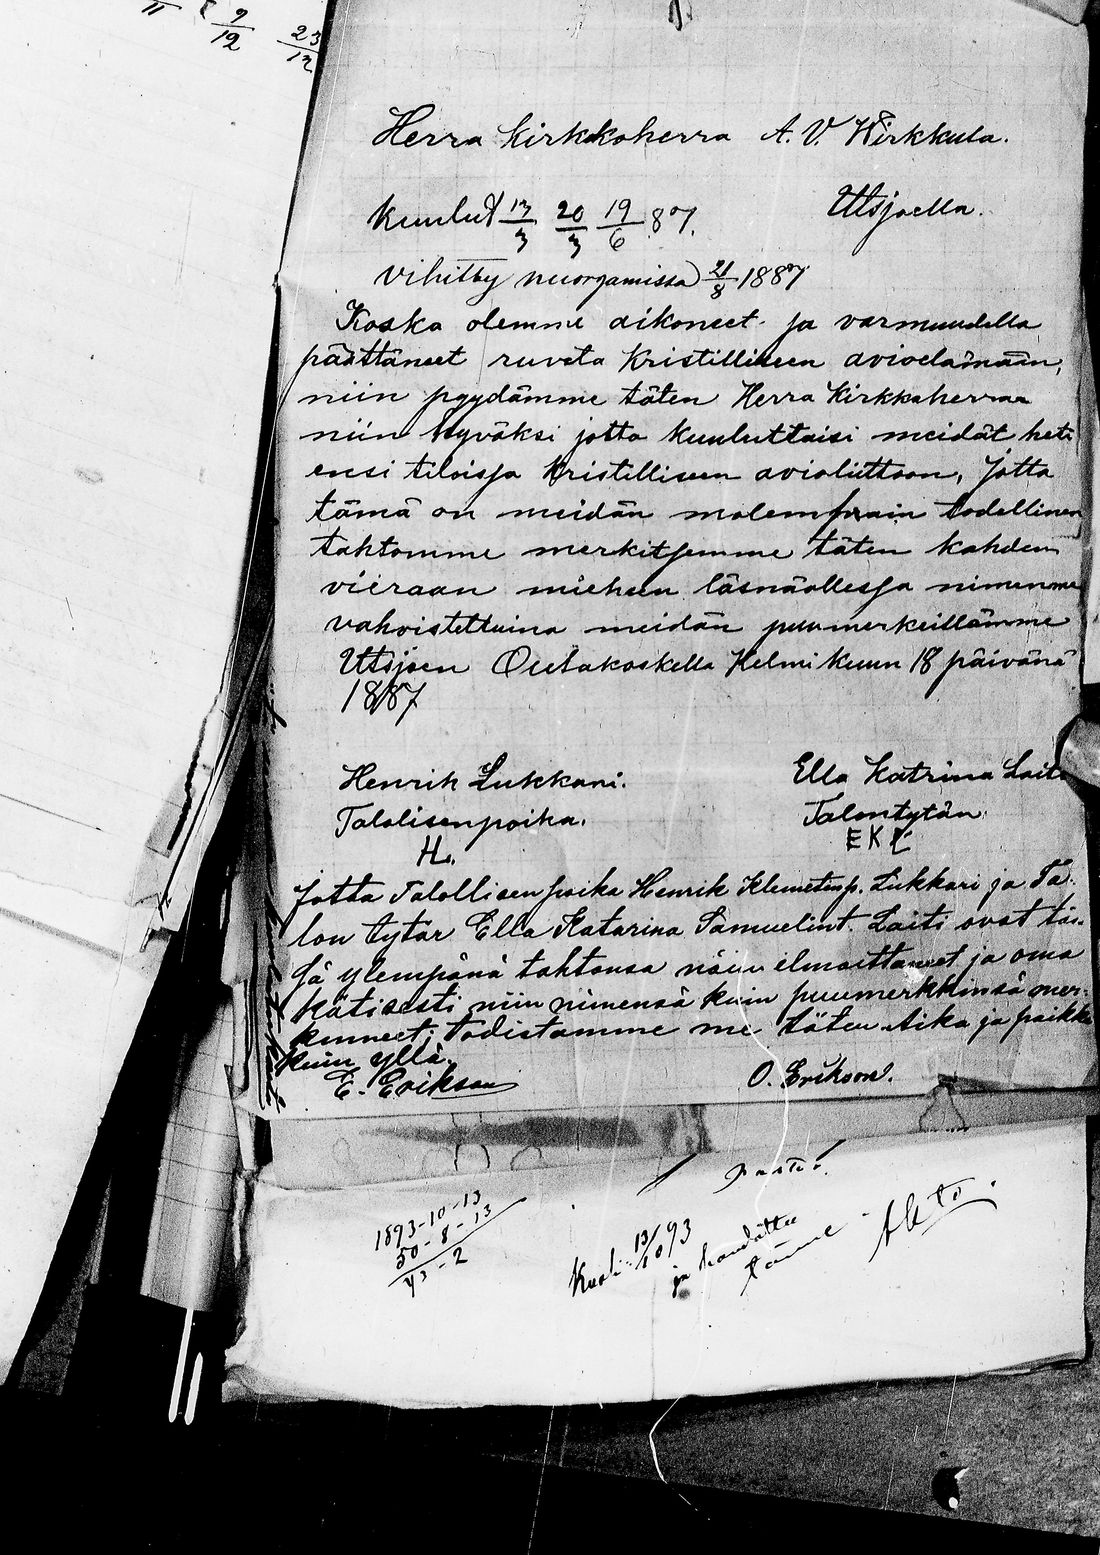 9/12 23/12
Herra Kirkkoherra A. V. Kirkkula.
Utsjoella.
Kuulut 13/3 20/3 19/6 87.
Vihitty nuorgamissa 21/8 1887
Koska olemme aikoneet ja varmuudella
päättäneet ruveta kristilliseen avioelämään,
niin pyydämme täten Herra Kirkkoherraa
niin hyväksi jotta kuuluttaisi meidät heti
ensi tilaisja Kristilliseen avioliittoon, Jotta
tämä on meidän molempain todellinen
tahtomme merkitsemme täten kahden
vieraan miehen läsnäollessa nimemme
vahvistettuina meidän puumerkeillämme
Utsjoen Outakoskella Helmikuun 18 päivänä
1887
Henrik Lukkari. Ella Katrina Laiti
Talolisenpoika. Talontytän.
HL. EKL
Jotta Talollisenpoika Henrik Klemetinp. Lukkari ja Ta-
lon tytär Ella Katarina Samuelint. Laiti ovat täs-
sä ylempänä tahtonsa näin ilmoittaneet ja oma
kätisesti niin nimensä kuin puumerkkinsä mer-
kinneet; todistamme me täten Aika ja paikka
kuin yllä.
E. Erikson O. Erikson.
1893-10-13
50-8-13
43-2
Kuoli 13/10 93
ja haudattu